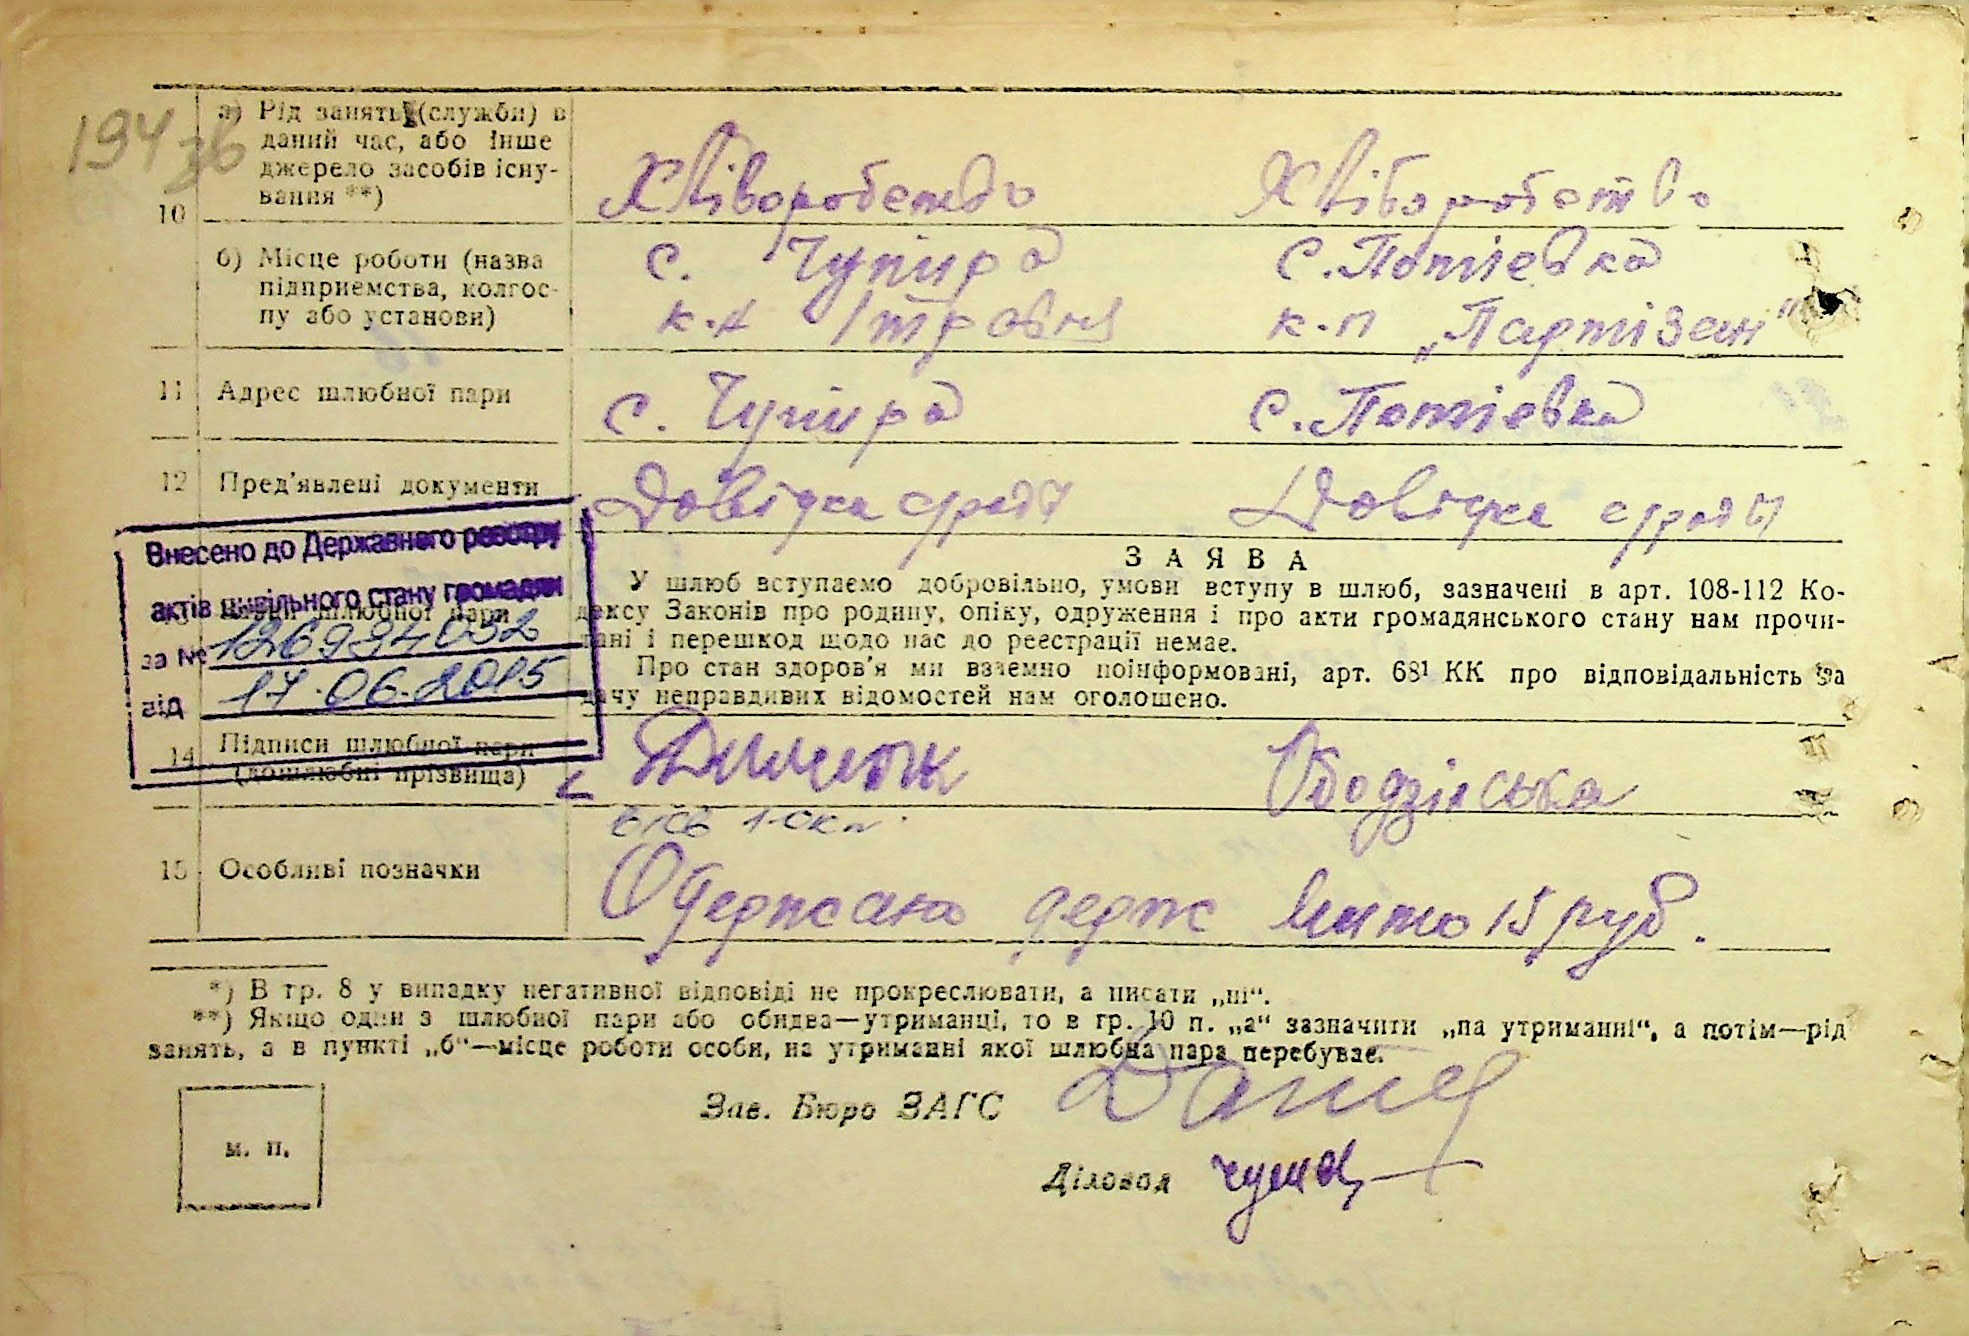 194 зв
10
а) Рід занять (служби) в
даний час, або інше
джерело засобів існу-
вання **)
Хліборобство
Хліборобство
б) Місце роботи (назва
підприємства, колгос-
пу або установи)
с. Чупира
к.п 1 травня
с. Потіевка
к-п „Партізан"
11 Адрес шлюбної пари
с. Чупира
с. Потіевка
12 Пред'явлені документи
Довідка с/ради
Довідка с/ради
Внесено до Державного реєстру
актів цивільного стану громадян
за № 126994032
від 17.06.2015
шлюбної пари
ЗАЯВА
У шлюб вступаємо добровільно, умови вступу в шлюб, зазначені в арт. 108-112 Ко-
дексу Законів про родину, опіку, одруження і про акти громадянського стану нам прочи-
тані і перешкод щодо нас до реєстрації немає.
Про стан здоров'я ми взаємно поінформовані, арт. 68¹ КК про відповідальність за
дачу неправдивих відомостей нам оголошено.
14 Підписи шлюбної пари
(дошлюбні прізвища)
Ободзінська
15 Особливі позначки
Одержано держ мито 15 руб.
*) В гр. 8 у випадку негативної відповіді не прокреслювати, а писати „ні“.
**) Якщо один з шлюбної пари або обидва—утриманці, то в гр. 10 п. „а“ зазначити „на утриманні“, а потім—рід
занять, а в пункті „б“—місце роботи особи, на утриманні якої шлюбна пара перебуває.
м. п.
Зав. Бюро ЗАГС
Діловод